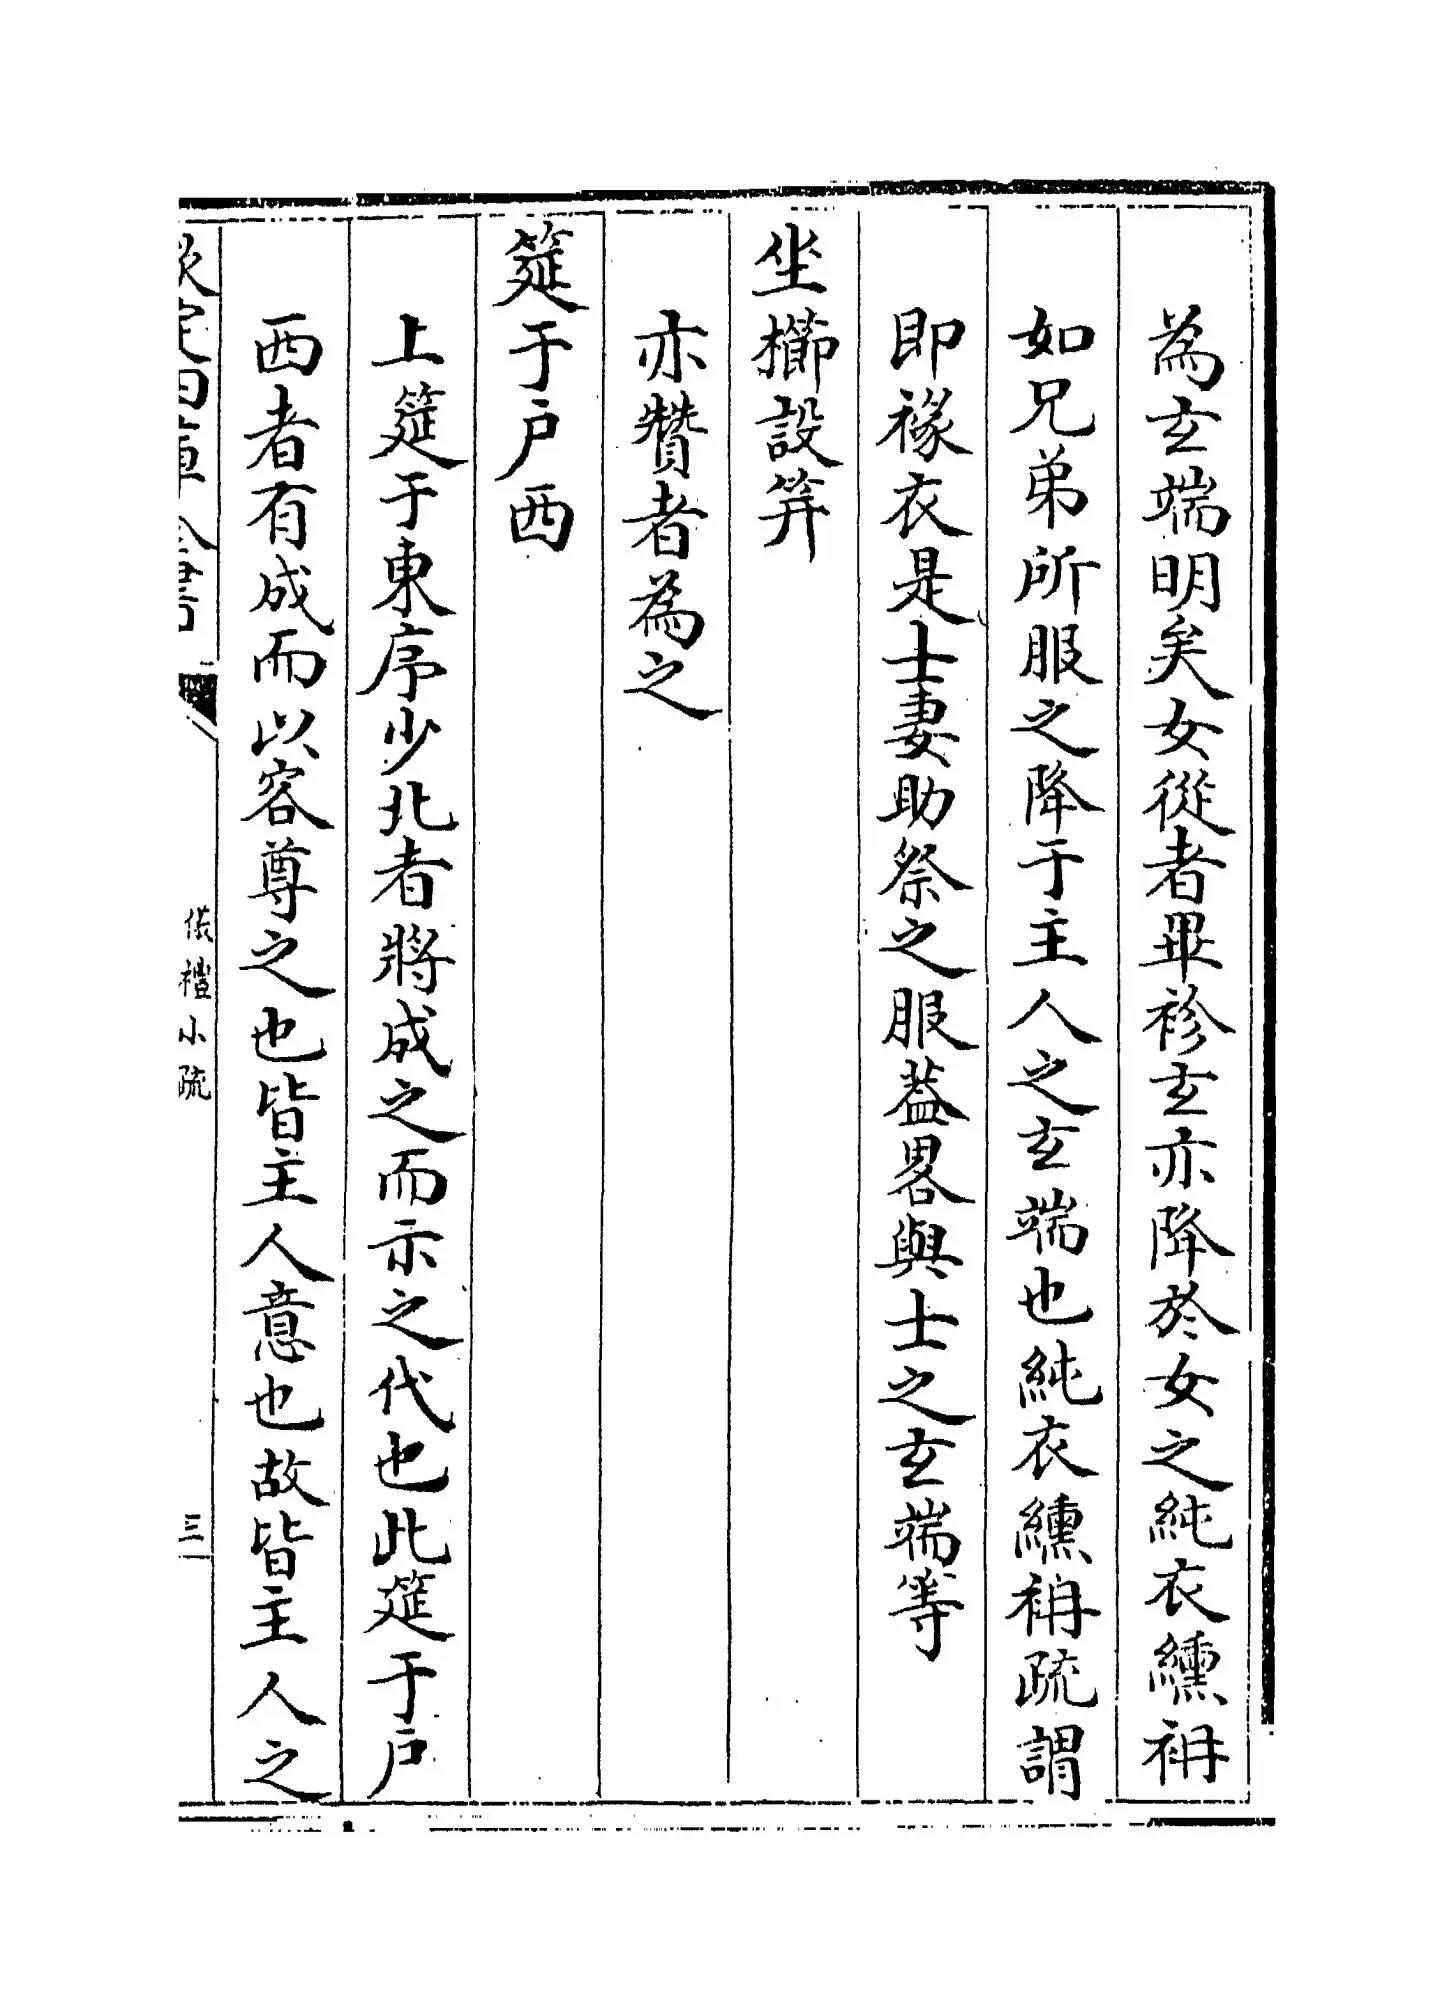 為玄端明矣女從者畢袗玄亦降於女之純衣纁袡
如兄弟所服之降于主人之玄端也純衣纁袡疏謂
即褖衣是士妻助祭之服葢畧與士之玄端等
坐櫛設笄
亦贊者為之
筵于户西
上筵于東序少北者將成之而示之代也此筵于户
西者有成而以客尊之也皆主人意也故皆主人之
欽定四庫全書
儀禮小疏
三